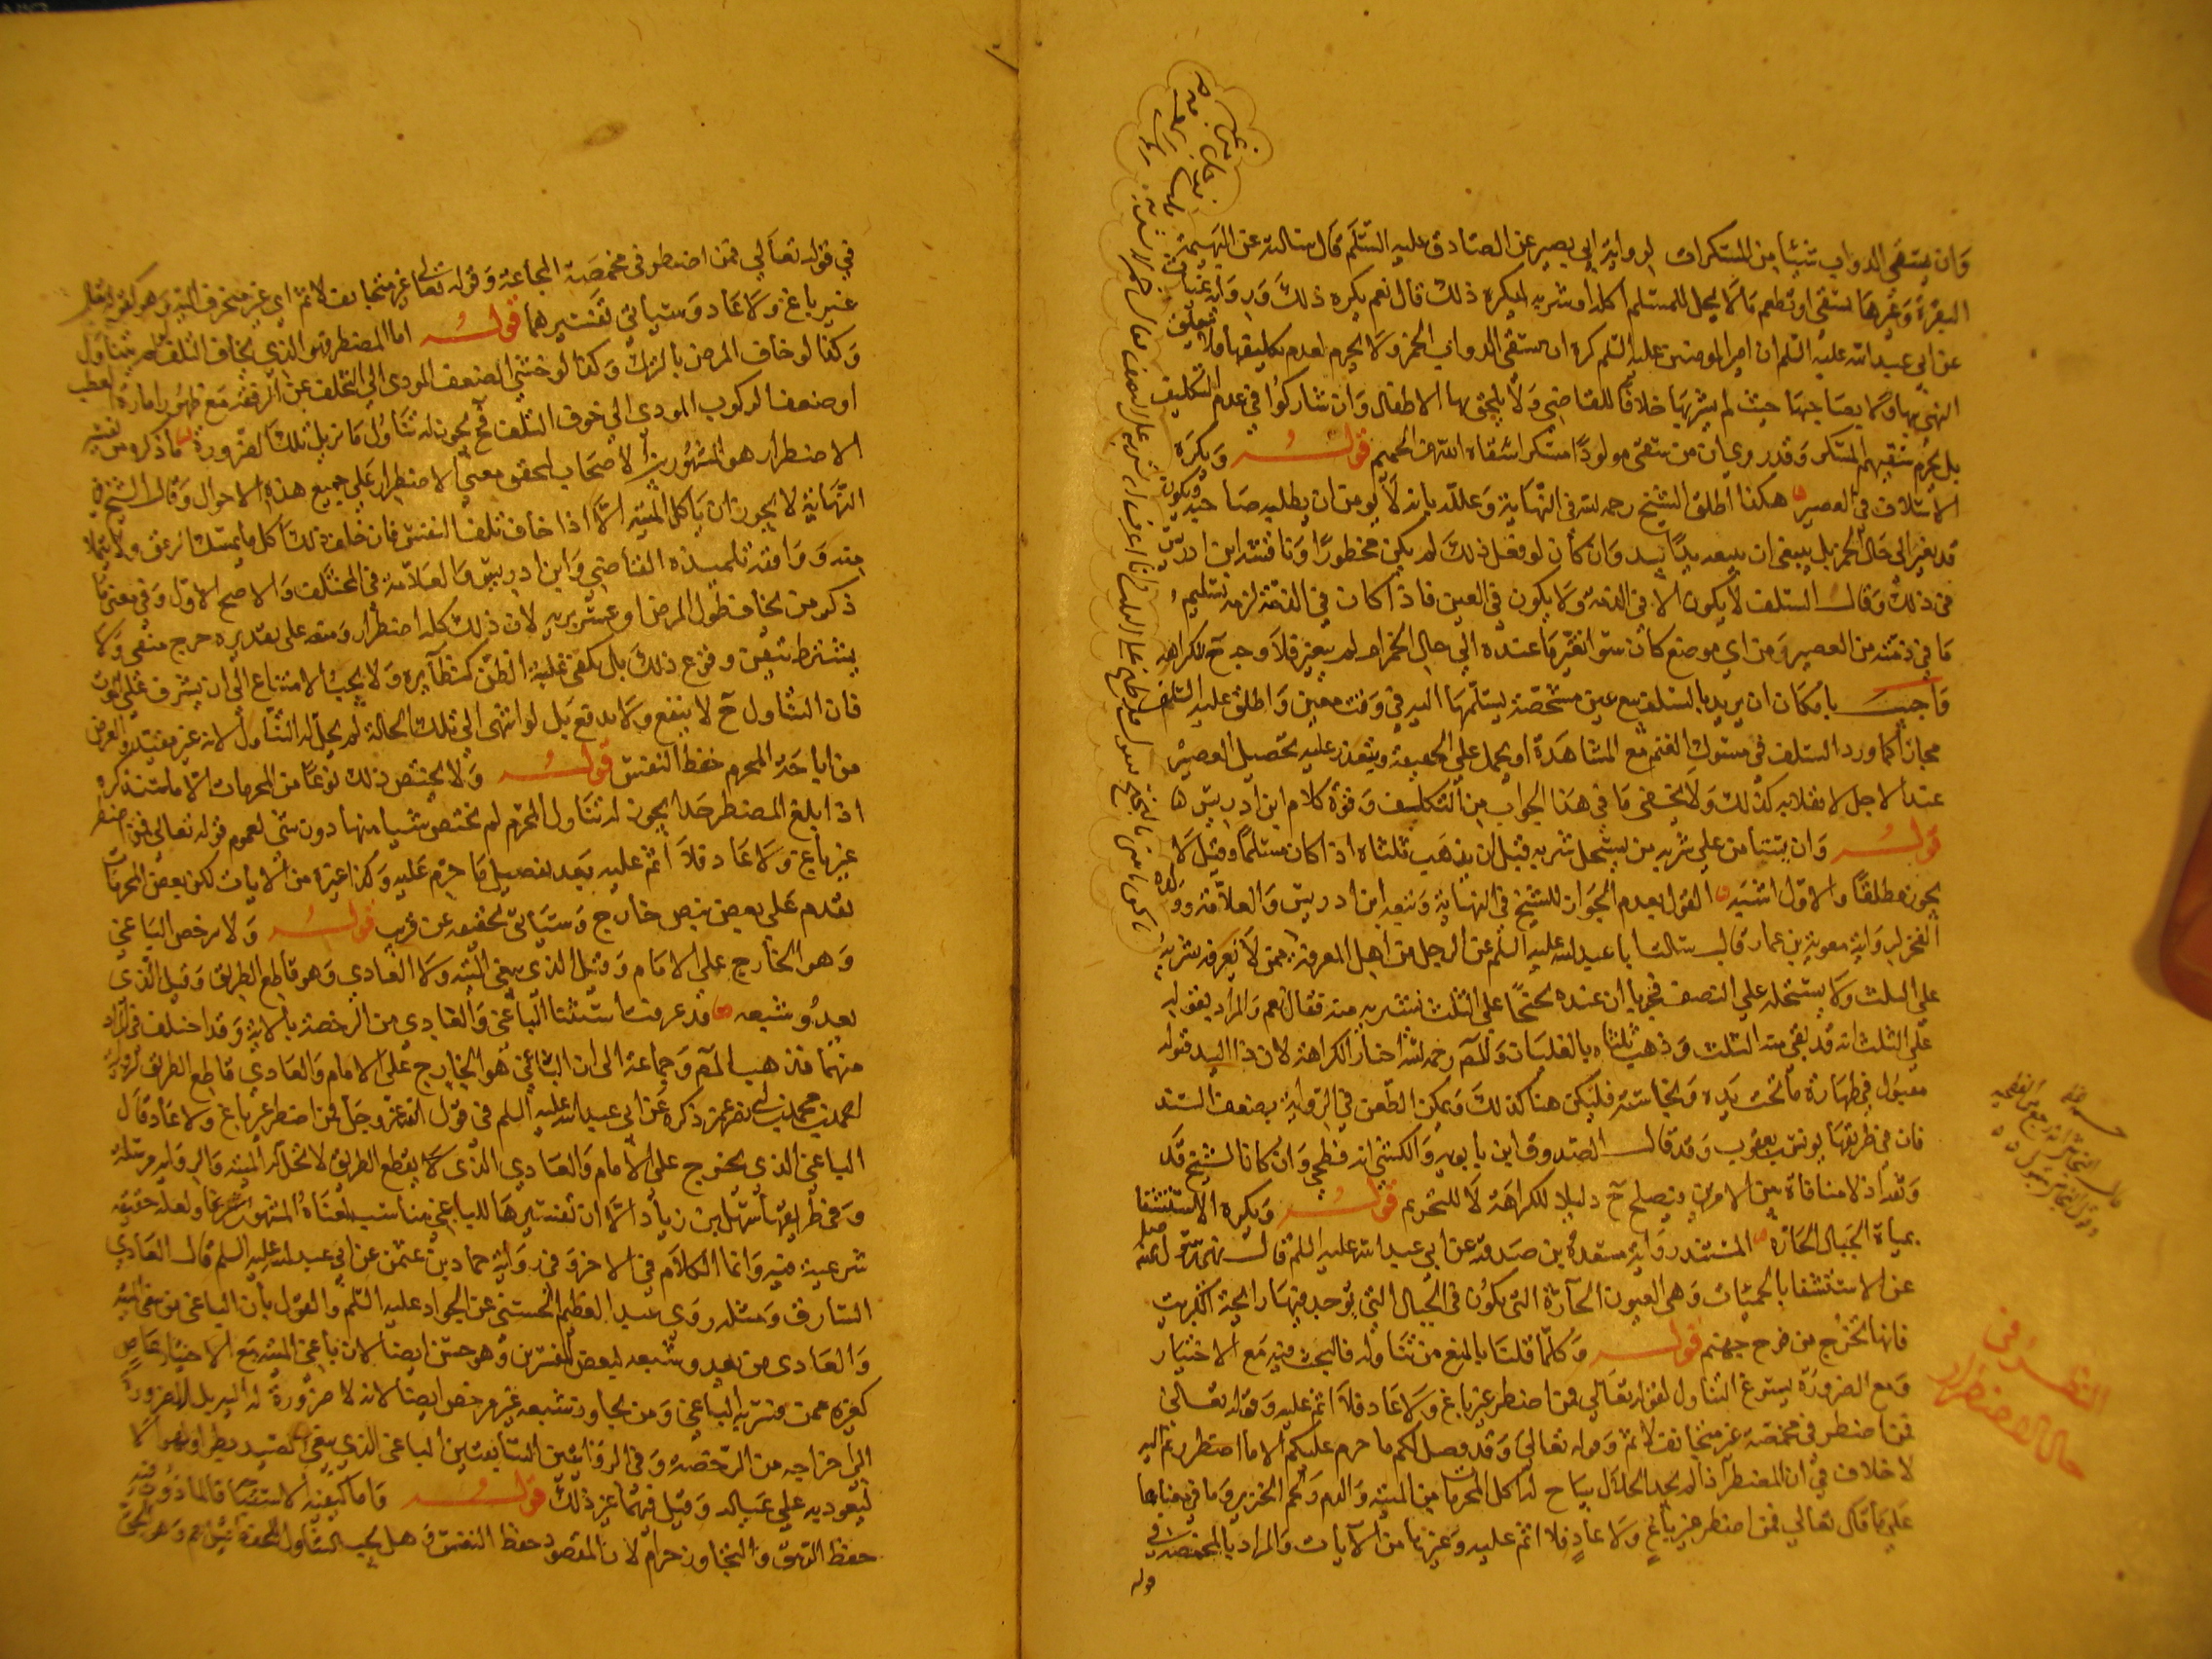 وان يسقى الدواب شيئا من المسكرات لرواية ابي بصير عن الصادق عليه السلم قال سالته عن البهيمة
البقرة وغيرها تسقى او تطعم مالا يحل للمسلم اكله او شربه ايكره ذلك قال نعم يكره ذلك وروايه غياث
عن ابي عبد الله عليه السلم ان امير المومنين عليه السلم كره ان يسقى الدواب الخمر ولا يحرم لعدم تكليفها فلا يتعلق
النهي بها ولا بصاحبها حيث لم يشربها خلافا للقاضي ولا يلحق بها الاطفال وان شاركوا في عدم التكليف
بل يحرم سقيهم المسكر وقد روي ان من سقى مولودا مسكرا سقاه الله من الحميم قوله ويكره
الاسلاف في العصير هكذا اطلق الشيخ رحمه الله في النهاية وعلله بانه لا يومن ان يطلبه صاحبه ويكون
قد تغير الى حال الخمر بل ينبغي ان يبيعه يدا بيد وان كان لو فعل ذلك لم يكن محظورا وناقشه ابن ادريس
في ذلك وقال السلف لا يكون الا في الذمة ولا يكون في العين فاذا كان في الذمة لزمه تسليم
ما في ذمته من العصير ومن اي موضع كان سوا تغير ما عنده الي حال الخمر او لم يتغير فلا وجه ح للكراهه
واجيب بامكان ان يريد بالسلف بيع عين مشخصة يسلمها اليه في وقت معين واطلق عليه السلم
مجازا كما ورد السلف في مسوك الغنم مع المشاهدة او يحمل علي الحقيقة ويتعذر عليه تحصيل العصير
عند الاجل لانقلابه كذلك ولا يخفى ما في هذا الجواب من التكليف وقوة كلام ابن ادريس
قوله وان يستامن علي شربه من يستحل شربه قبل ان يذهب ثلثاه اذا كان مسلما وقيل لا
يجوز مطلقا والاول اشبه القول بعدم الجواز للشيخ في النهاية وتبعه ابن ادريس والعلامه وولده
الفخر لرواية معوية بن عمار قال سالت ابا عبد الله عليه السلم عن الرجل من اهل المعرفة ممن لا يعرفه يشربه
علي الثلث ولا يستحله علي النصف فيخبرنا ان عنده بختجا على الثلث نشربه منه فقال نعم والمراد بقوله
علي الثلث انه قد بقي منه الثلث وذهب ثلثاه بالغليان والمصر رحمه الله اختار الكراهة لان ذا اليد قوله
مقبول في طهارة ما تحت يده ونجاسته فليكن هنا كذلك ويمكن الطعن في الرواية بضعف السند
فان في طريقها يونس بن يعقوب وقد قال الصدوق ابن بابويه والكشي انه فطحي وان كان الشيخ قد
وثقه اذ لا منافاة بين الامرين وتصلح ح دليلا للكراهة لا للتحريم قوله ويكره الاستشفا
بمياة الجبال الحارة المستند رواية مسعدة بن صدقة عن ابي عبد الله عليه السلم قال نهى رسول الله صلى الله عليه
عن الاستشفا بالحميات وهي العيون الحارة التي تكون في الجبال التي يوجد فيها رايحة الكبريت
فانها تخرج من فوح جهنم قوله وكلما قلنا بالمنع من تناوله فالبحث فيه مع الاختيار
ومع الضرورة يسوغ التناول لقوله تعالي فمن اضطر غير باغ ولا عاد فلا اثم عليه وقوله تعالى
فمن اضطر في مخمصة غير متجانف لاثم وقوله تعالي وقد فصل لكم ما حرم عليكم الا ما اضطررتم اليه
لا خلاف في ان المضطر اذا لم يجد الحلال يباح له اكل المحرمات من الميتة والدم ولحم الخنزير وما في معناها
علي ما قال تعالي فمن اضطر غير باغ ولا عاد فلا اثم عليه وغيرها من الآيات والمراد بالمخمصة في
قوله
النظر في
حال الاضطرار
في قوله تعالي فمن اضطر في مخمصة المجاعة وقوله تعالى غير متجانف لاثم اي غير منحرف اليه وهو كقوله تعالى
غير باغ ولا عاد وسياتي تفسيرهما قوله اما المضطر فهو الذي يخاف التلف لو لم يتناول
وكذا لو خاف المرض بالترك وكذا لو خشي الضعف المودي الي التخلف عن الرفقة مع ظهور امارة العطب
او ضعف الركوب المودي الي خوف التلف فح يجوز له تناول ما يزيل تلك الضرورة ما ذكره من تفسير
الاضطرار هو المشهور بين الاصحاب لتحقق معني الاضطرار علي جميع هذه الاحوال وقال الشيخ في
النهاية لا يجوز ان ياكل الميتة الا اذا خاف تلف النفس فان خاف ذلك اكل ما يمسك الرمق ولا يتملا
منه ووافقه تلميذه القاضي وابن ادريس والعلامة في المختلف والاصح الاول وفي معنى ما
ذكر من يخاف طول المرض او عسر بريه لان ذلك كله اضطرار ومنعه على تقديره حرج منفي ولا
يشترط تيقن وقوع ذلك بل يكفي غلبة الظن كنظايره ولا يجب الامتناع الي ان يشرف علي الموت
فان التناول ح لا ينفع ولا يدفع بل لو انتهى الي تلك الحالة لم يحل له التناول لانه غير مفيد والغرض
من اباحة المحرم حفظ النفس قوله ولا يختص ذلك نوعا من المحرمات الا ما سنذكره
اذا بلغ المضطر حدا يجوز له تناول المحرم لم يختص شيا منها دون شي لعموم قوله تعالى فمن اضطر
غير باغ ولا عاد فلا اثم عليه بعد تفصيل ما حرم عليه وكذا غيره من الايات لكن بعض المحرمات
تقدم علي بعض بنص خارج وسياتي تحقيقه عن قريب قوله ولا يرخص الباغي
وهو الخارج علي الامام وقيل الذي يبغي الميته ولا العادي وهو قاطع الطريق وقيل الذي
يعدو شبعه قد عرفت استثنا الباغي والعادي من الرخصة بالاية وقد اختلف في المراد
منهما فذهب المصر وجماعة الى ان الباغي هو الخارج علي الامام والعادي قاطع الطريق لرواية
احمد بن محمد بن ابي نصر عمن ذكره عن ابي عبد الله عليه السلم في قول الله عز وجل فمن اضطر غير باغ ولا عاد قال
الباغي الذي يخرج على الامام والعادي الذي يقطع الطريق لا تحل له الميته والرواية مرسلة
وفي طريقها سهل بن زياد الا ان تفسيرها للباغي مناسب لمعناه المشهور شرعا ولعله حقيقة
شرعية فيه وانما الكلام في الاخر وفي رواية حماد بن عثمن عن ابي عبد الله عليه السلم قال العادي
السارق ومثله روي عبد العظيم الحسني عن الجواد عليه السلم والقول بان الباغي من يبغي الميته
والعادي من يعدو شبعه لبعض المفسرين وهو حسن ايضا لان باغي الميته مع الاختيار عاص
كغيره ممن فسر به الباغي ومن يجاوز شبعه غير مرخص ايضا لانه لا ضرورة له اليه بل الضرورة
الي اخراجه من الرخصة وفي الروايتين السابقتين الباغي الذي يبغي الصيد بطرا ولهوا لا
ليعود به علي عياله وقيل فيهما غير ذلك قوله واما كيفية الاستبقا فالماذون فيه
حفظ الرمق والتجاوز حرام لان المقصود حفظ النفس وهل يجب التناول للحفظ قيل نعم وهو الحق